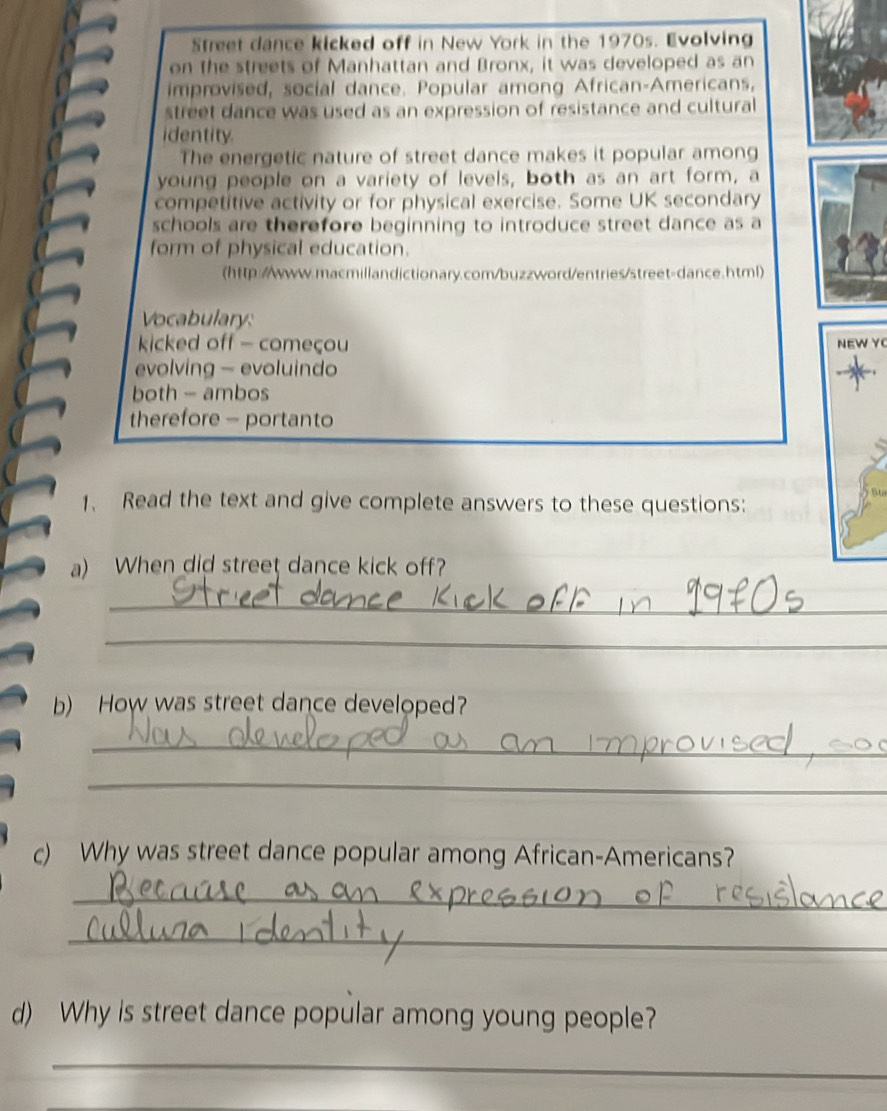 Street dance kicked off in New York in the 1970s. Evolving
on the streets of Manhattan and Bronx, it was developed as an
improvised, social dance. Popular among African-Americans,
street dance was used as an expression of resistance and cultural
identity.
The energetic nature of street dance makes it popular among
young people on a variety of levels, both as an art form, a
competitive activity or for physical exercise. Some UK secondary
schools are therefore beginning to introduce street dance as a
form of physical education.
(http://www.macmillandictionary.com/buzzword/entries/street-dance.html)
Vocabulary:
kicked off – começou
evolving – evoluindo
both – ambos
therefore – portanto
NEW YO
Sta
1. Read the text and give complete answers to these questions:
a) When did street dance kick off?
Street dance Kick off in 1970s
b) How was street dance developed?
Was developed as an improvised, soc
c) Why was street dance popular among African-Americans?
Because as an expression of resislance
cullura identity
d) Why is street dance popular among young people?